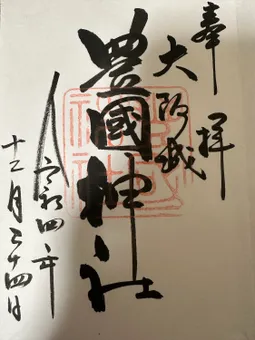 奉拝
大阪城
豊國神社
令和四年
十二月二十四日